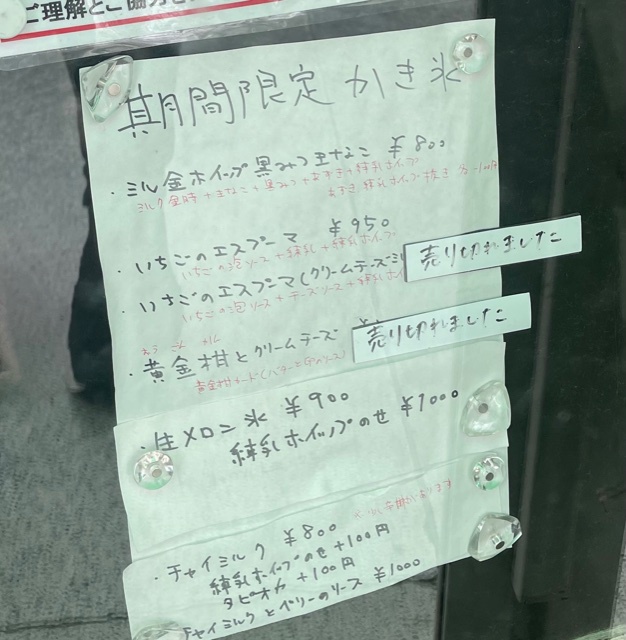 ご理解とご協力を
期間限定 かき氷
・ミル金ホイップ黒みつきなこ ¥800
ミルク金時+きなこ+黒みつ+あずき+練乳ホイップ
あずき 練乳ホイップ抜き
・いちごのエスプーマ ¥950
いちごの泡ソース+練乳+練乳ホイップ
売り切れました
・いちごのエスプーマ(クリームチーズ
いちごの泡ソース+チーズソース+練乳ホイ
・黄金柑とクリームチーズ
売り切れました
・生メロン氷 ¥900
練乳ホイップのせ ¥1000
・チャイミルク ¥800
練乳ホイップのせ +100円
タピオカ +100円
チャイミルクとベリーのソース ¥1000